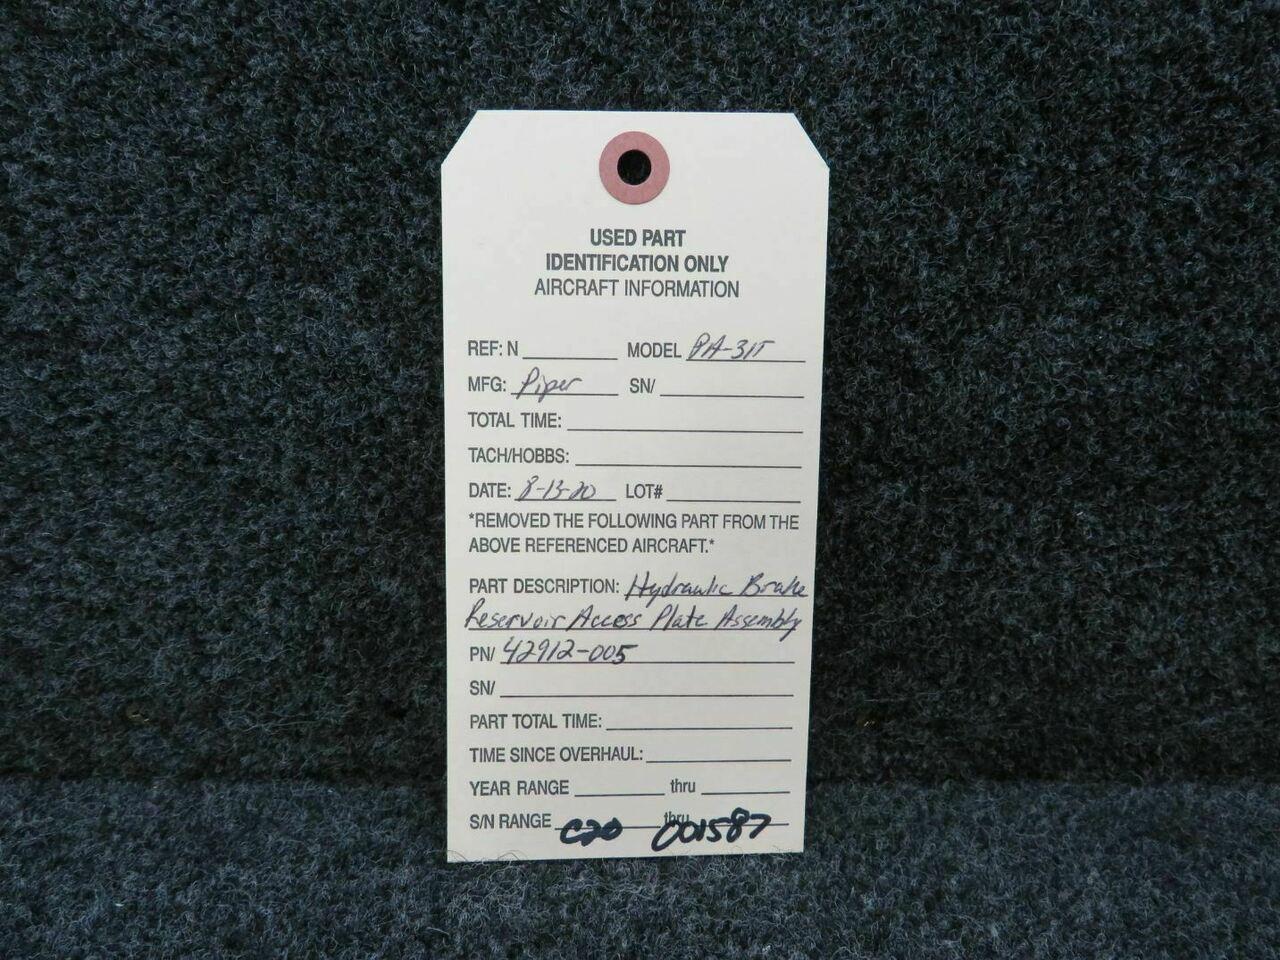 USED PART
IDENTIFICATION ONLY
AIRCRAFT INFORMATION
REF: N MODEL PA-31T
MFG: Piper SN/
TOTAL TIME:
TACH/HOBBS:
DATE: 8-13-20 LOT#
*REMOVED THE FOLLOWING PART FROM THE
ABOVE REFERENCED AIRCRAFT.*
PART DESCRIPTION: Hydraulic Brake
Reservoir Access Plate Assembly
PN/ 42912-005
SN/
PART TOTAL TIME:
TIME SINCE OVERHAUL:
YEAR RANGE thru
S/N RANGE thru
C20 001587